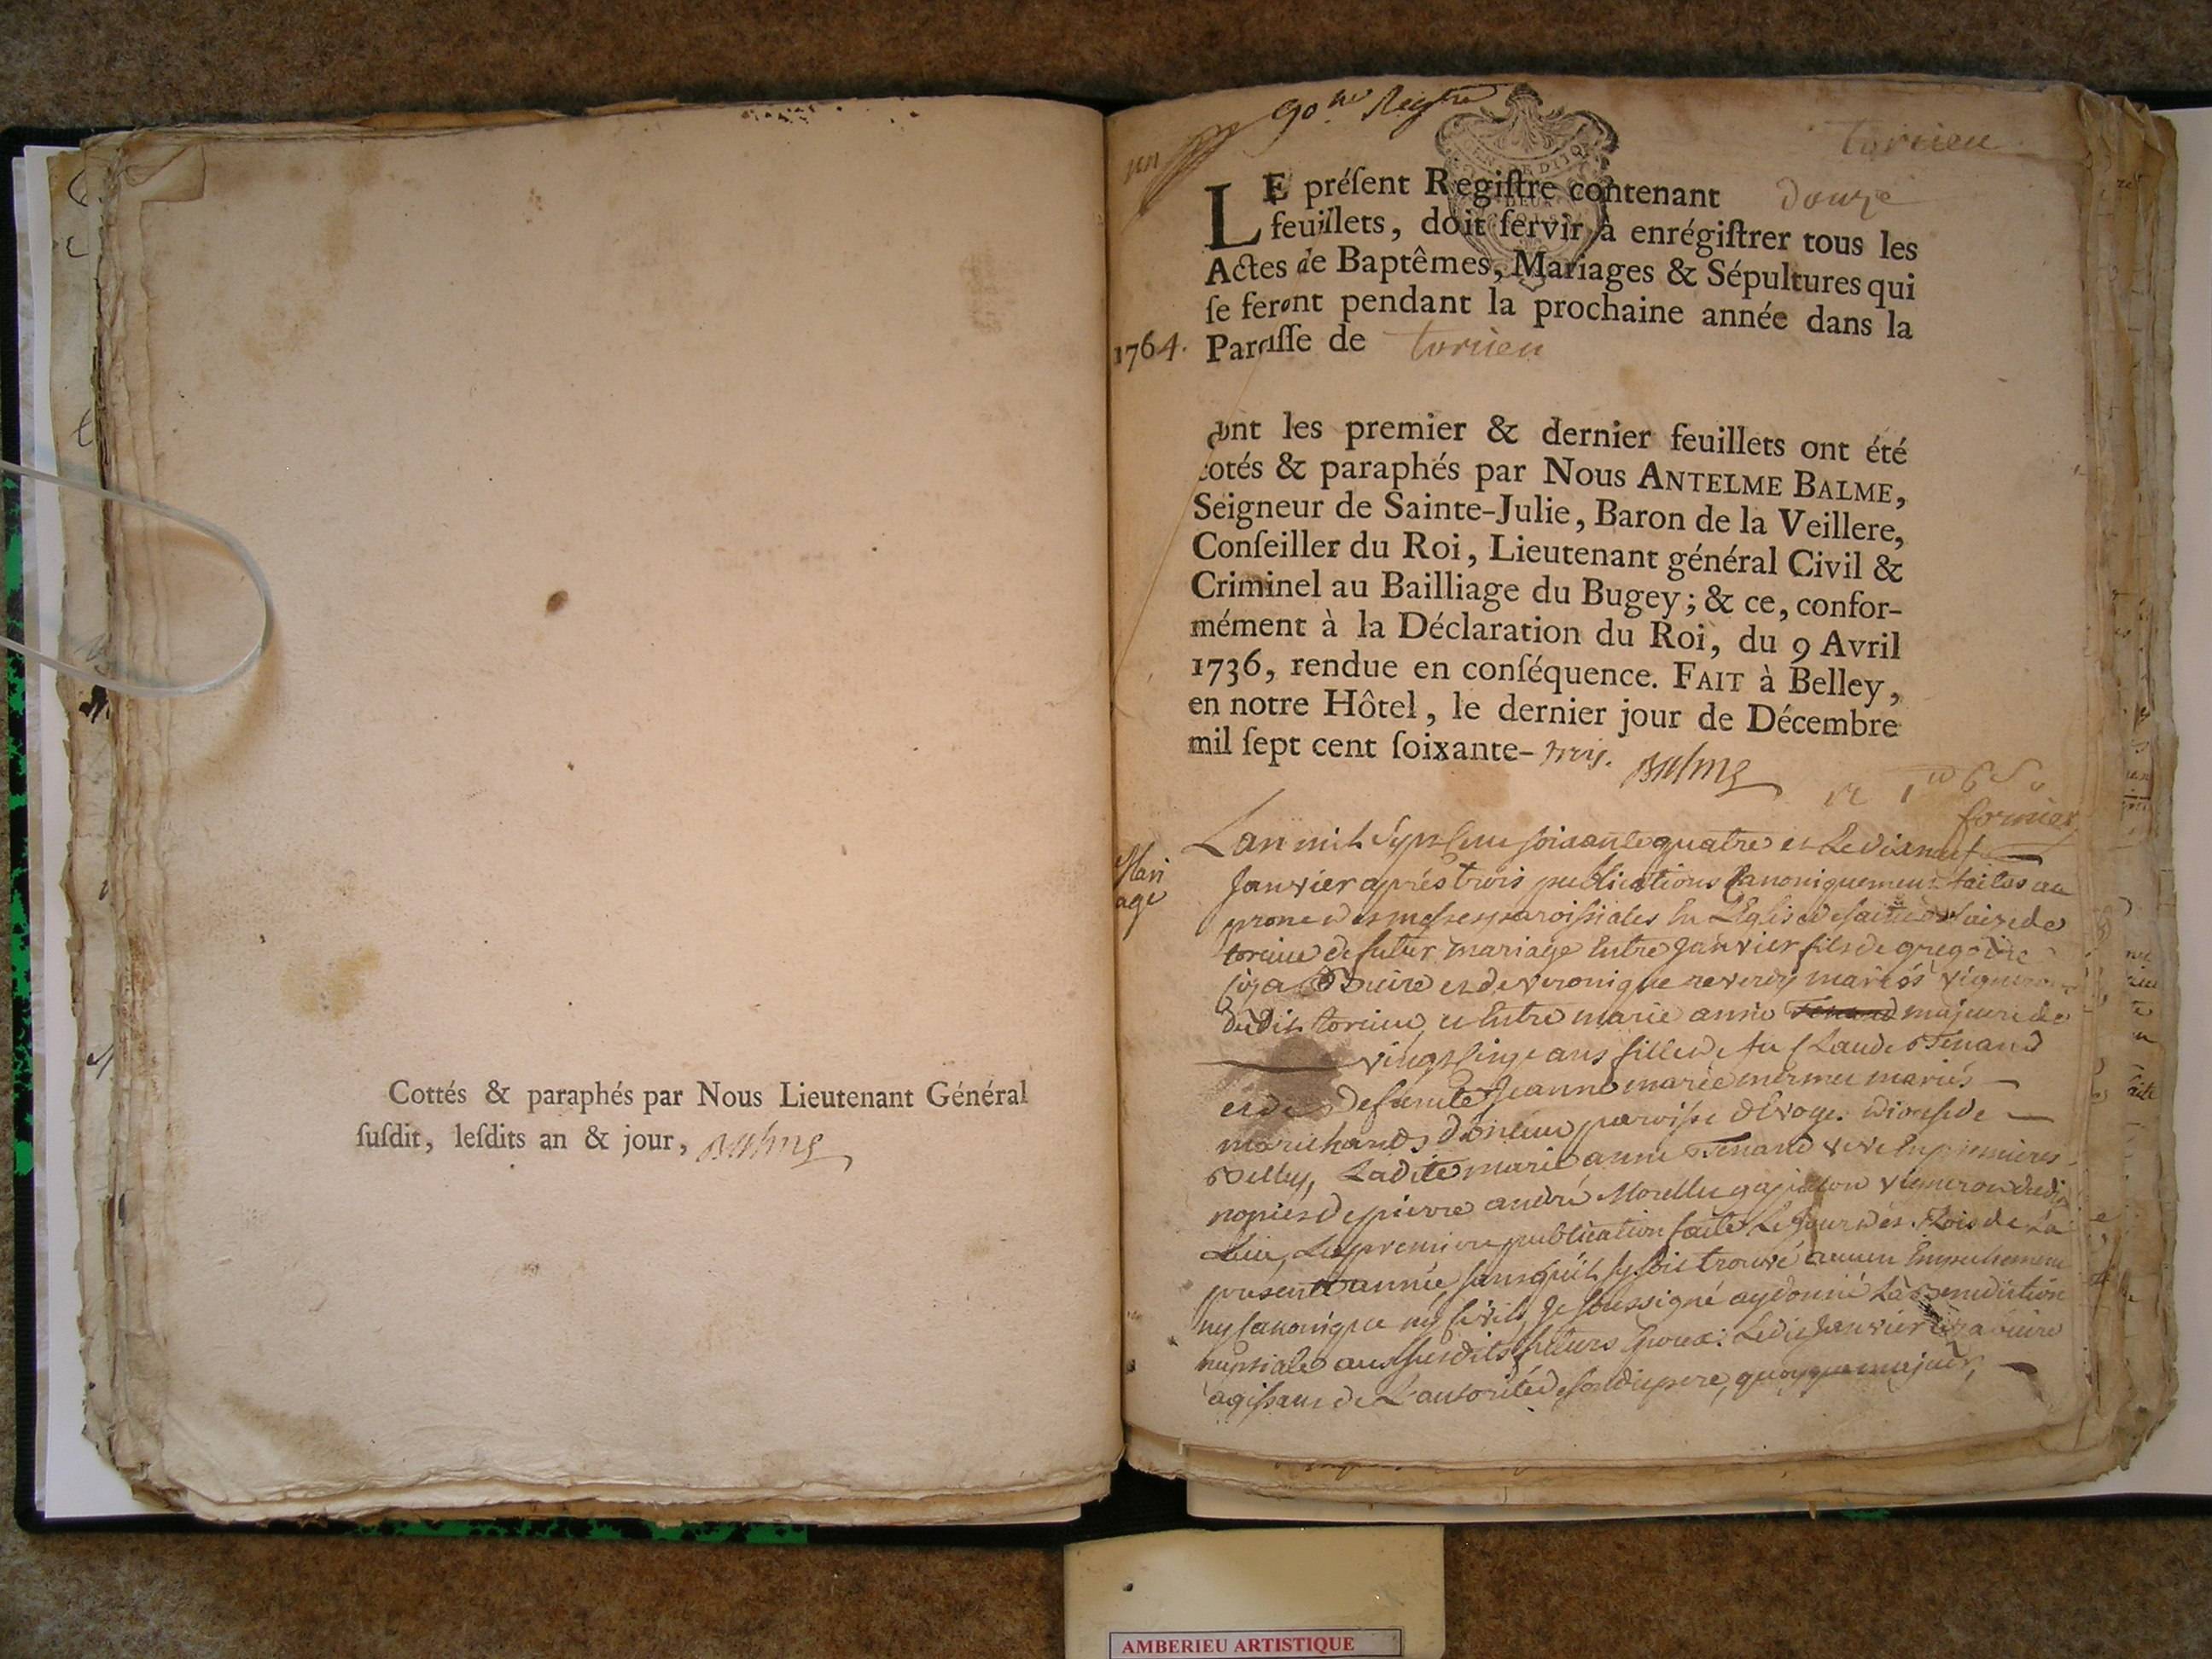 Cottés & paraphés par Nous Lieutenant Général
ſuſdit, leſdits an & jour, Balme
90me Registre
torcieu
LE préſent Regiſtre contenant douze
feuillets, doit ſervir à enrégiſtrer tous les
Actes de Baptêmes, Mariages & Sépultures qui
ſe feront pendant la prochaine année dans la
1764. Paroiſſe de torcieu
dont les premier & dernier feuillets ont été
cotés & paraphés par Nous ANTELME BALME,
Seigneur de Sainte-Julie, Baron de la Veillere,
Conſeiller du Roi, Lieutenant général Civil &
Criminel au Bailliage du Bugey ; & ce, confor-
mément à la Déclaration du Roi, du 9 Avril
1736, rendue en conſéquence. FAIT à Belley,
en notre Hôtel, le dernier jour de Décembre
mil ſept cent ſoixante- trois. Balme
Mari
age
Lan mil sept cent soixante quatre et le dixneuf
Janvier après trois publications canoniquement faites au
prone des messes paroissiales en L'Eglise de de
torcieu de futur mariage entre Janvier fils de gregoire
et de veronique reverdy mariés vigneron
dudit torcieu, et entre marie anne majeure de
vingt cinq ans fille de feu Claude Tenand
et de defunte Jeanne marie mermet mariés
marchands paroisse diocese de
Belley, Ladite marie anne Tenand veve en premieres
nopces de pierre andré Morellet vigneron dudit
Lieu, La premiere publication faite le Jour des Rois de La
presente année, sans qu'il sy soit trouvé aucun Empechement
ny canonique ny civil, Je soussigné ay donné La Benediction
nuptiale aux susdits futurs Epoux: Ledit Janvier
agissant de L'autorité de sondit pere, quoyque majeur,
AMBERIEU ARTISTIQUE